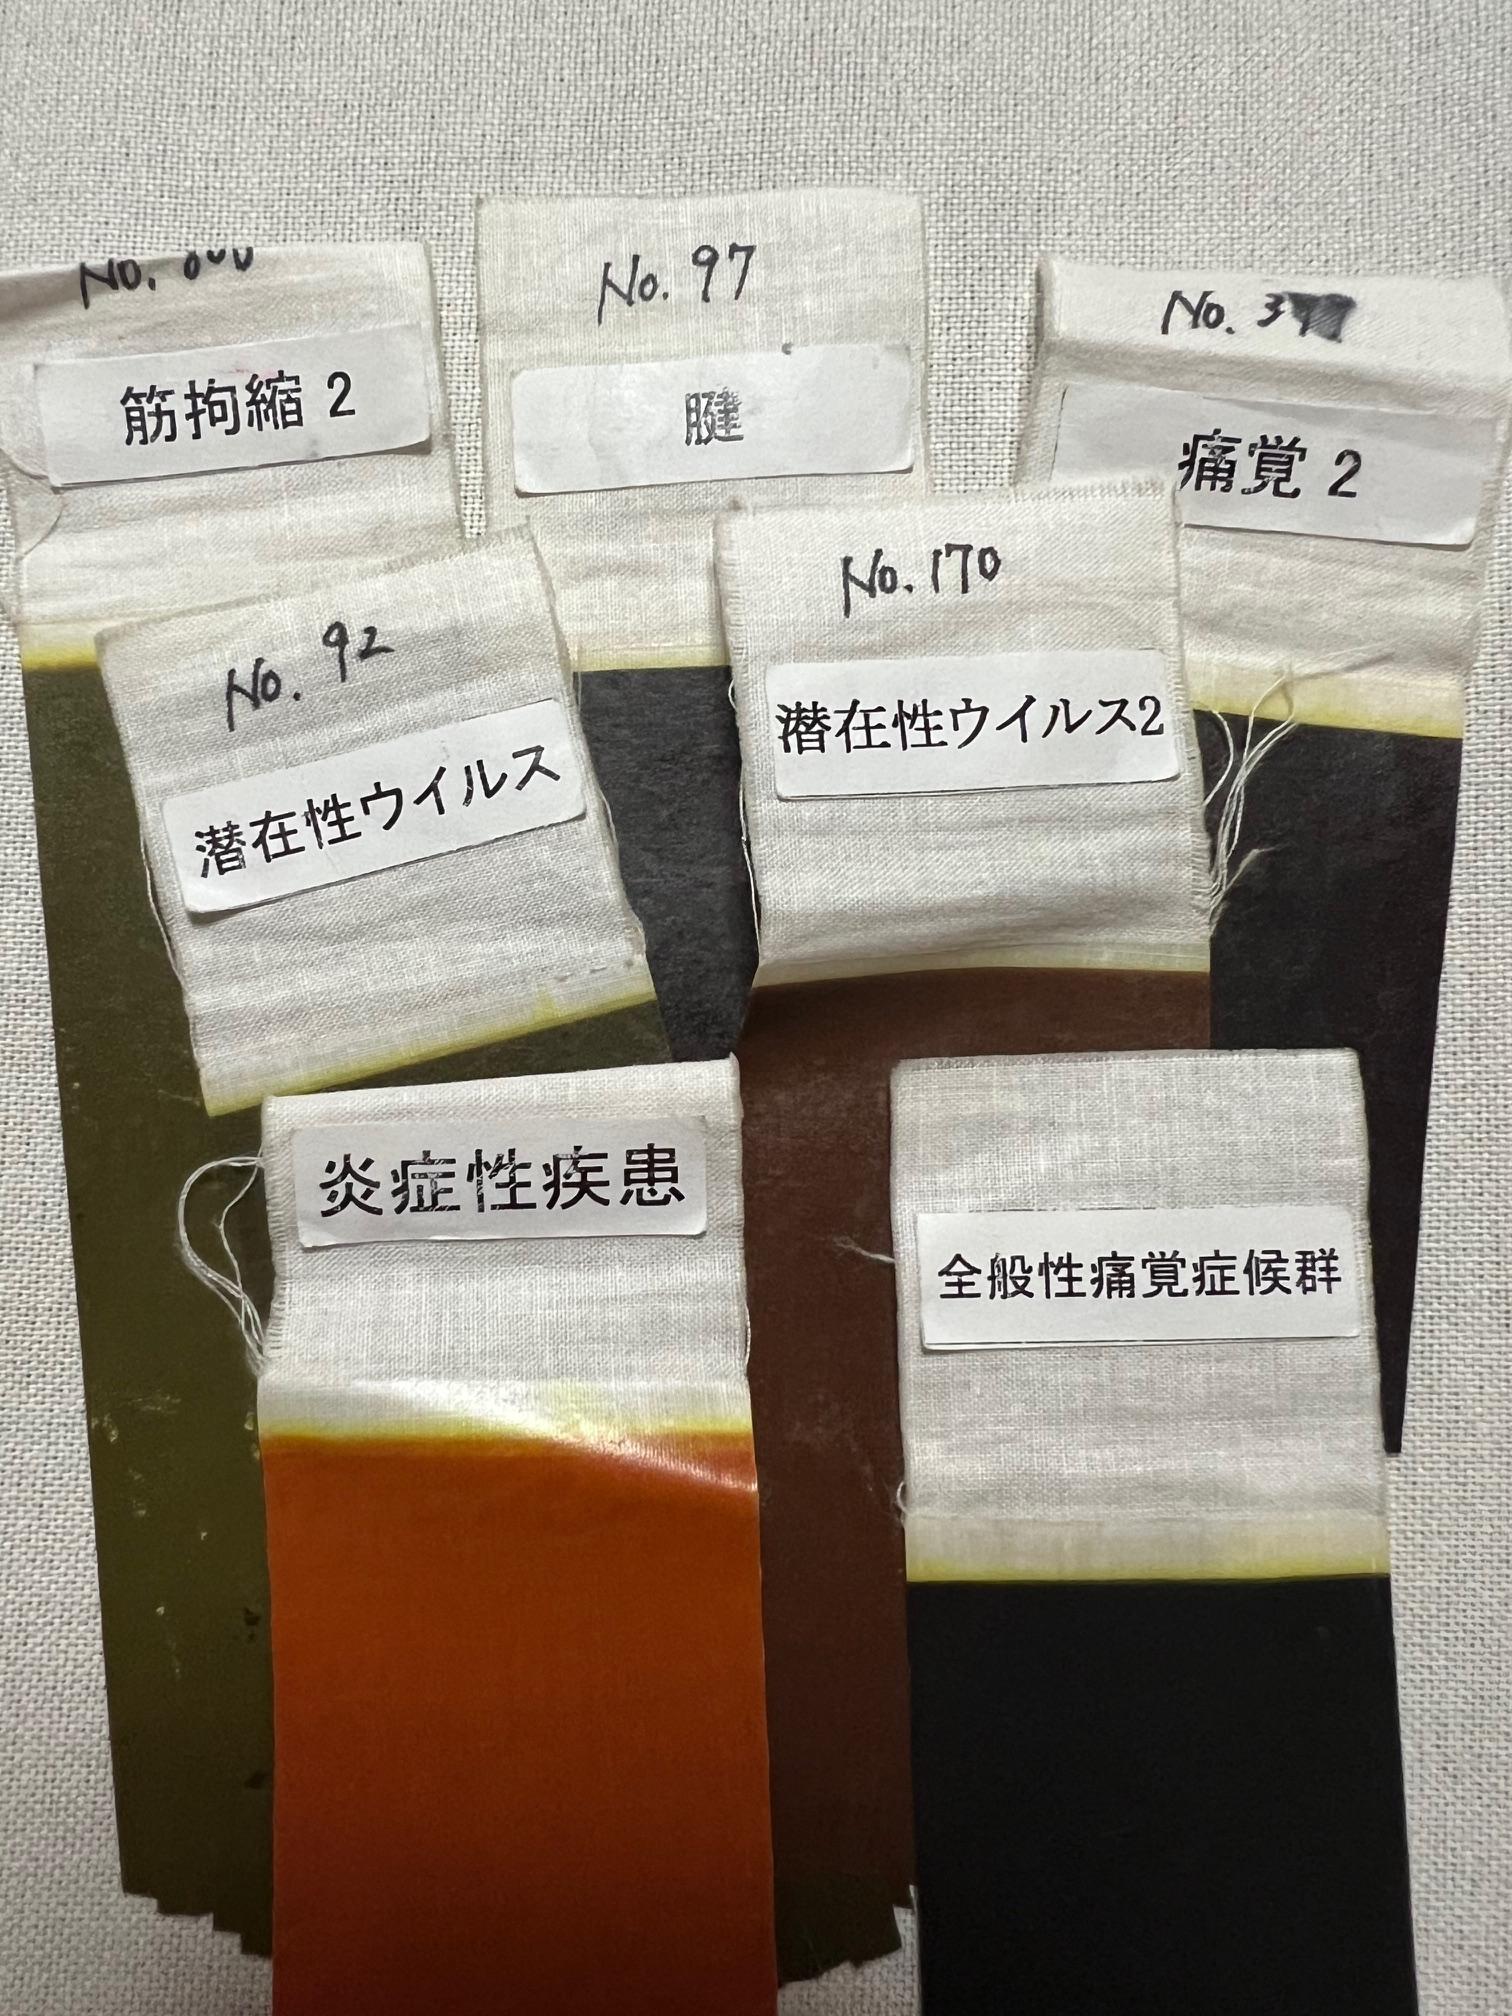 No.
筋拘縮 2
No. 97
腱
No. 3
痛覚 2
No. 92
潜在性ウイルス
No. 170
潜在性ウイルス2
炎症性疾患
全般性痛覚症候群